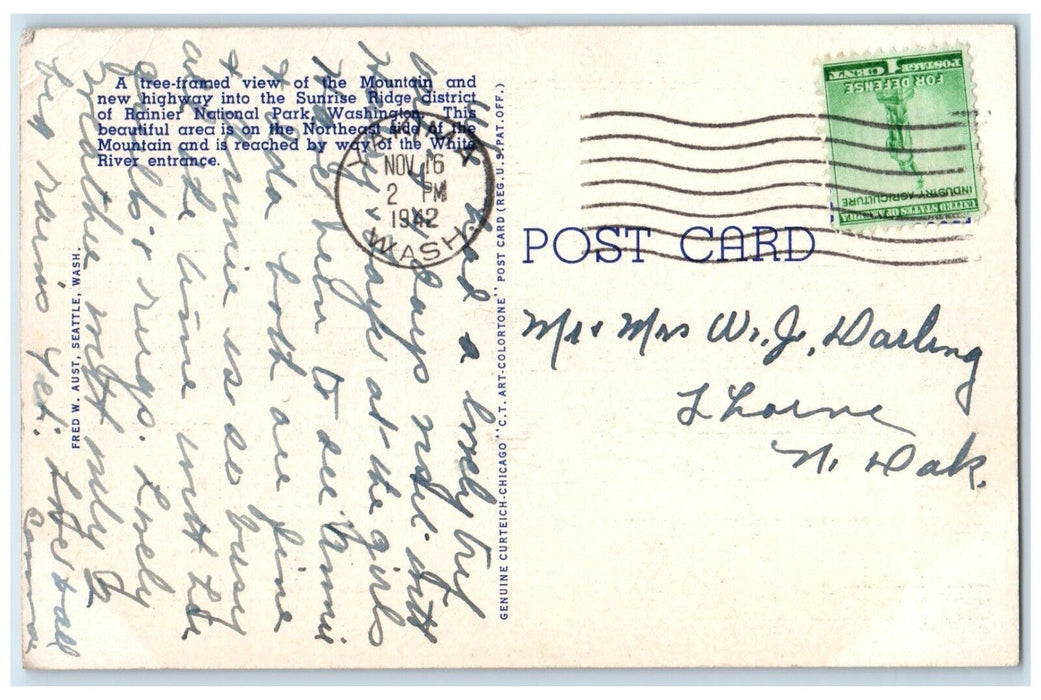 A tree-framed view of the Mountain and
new highway into the Sunrise Ridge district
of Rainier National Park, Washington. This
beautiful area is on the Northeast side of the
Mountain and is reached by way of the White
River entrance.
FRED W. AUST, SEATTLE, WASH.
GENUINE CURTEICH-CHICAGO "C.T. ART-COLORTONE" POST CARD (REG. U.S. PAT. OFF.)
POST CARD
NOV 16
2 PM
1942
WASH
1 CENT POSTAGE
FOR DEFENSE
INDUSTRY AGRICULTURE
UNITED STATES OF AMERICA
Mr & Mrs W. J. Darling
Thorne
N. Dak.
had a lovely trip
days and
at the girls
here to see Minnie
& both are fine
& Minnie is so busy
all the time with
rugs. Lovely
weather
rains yet. Love to all